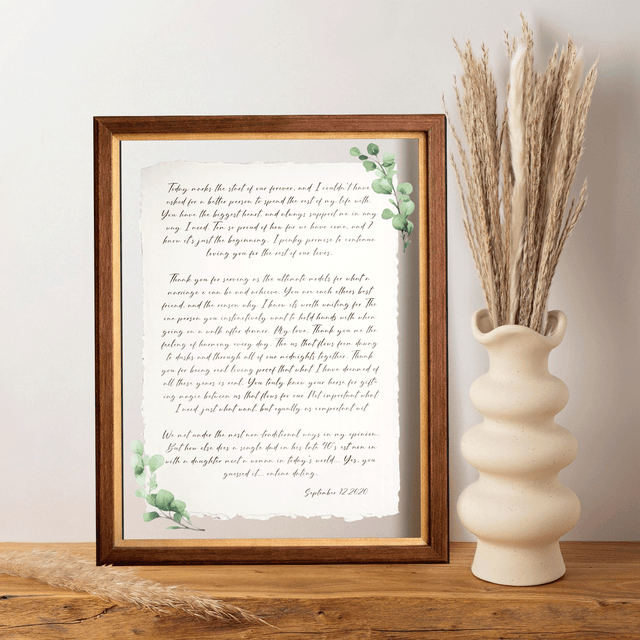 Today marks the start of our forever, and I couldn't have
asked for a better person to spend the rest of my life with.
You have the biggest heart, and always support me in any
way I need. I'm so proud of how far we have come, and I
know it's just the beginning. I pinky promise to continue
loving you for the rest of our lives.
Thank you for serving as the ultimate models for what a
marriage can be and achieve. You are each others best
friend, and the reason why I know its worth waiting for The
one person you instinctively want to hold hands with when
going on a walk after dinner. My love. Thank you me the
feeling of harmony every day. The us that flows from dawns
to dusks and through all of our midnights together. Thank
you for being real living proof that what I have dreamed of
all these years is real. You truly know your for gift-
ing magic between us that flows for our Not important what
I need just what want, but equally as important
We met under the most non-traditional ways in my opinion.
But how else does a single dad in his late 40's
with a daughter meet a woman in today's world... Yes, you
guessed it... online dating.
September 12,2020